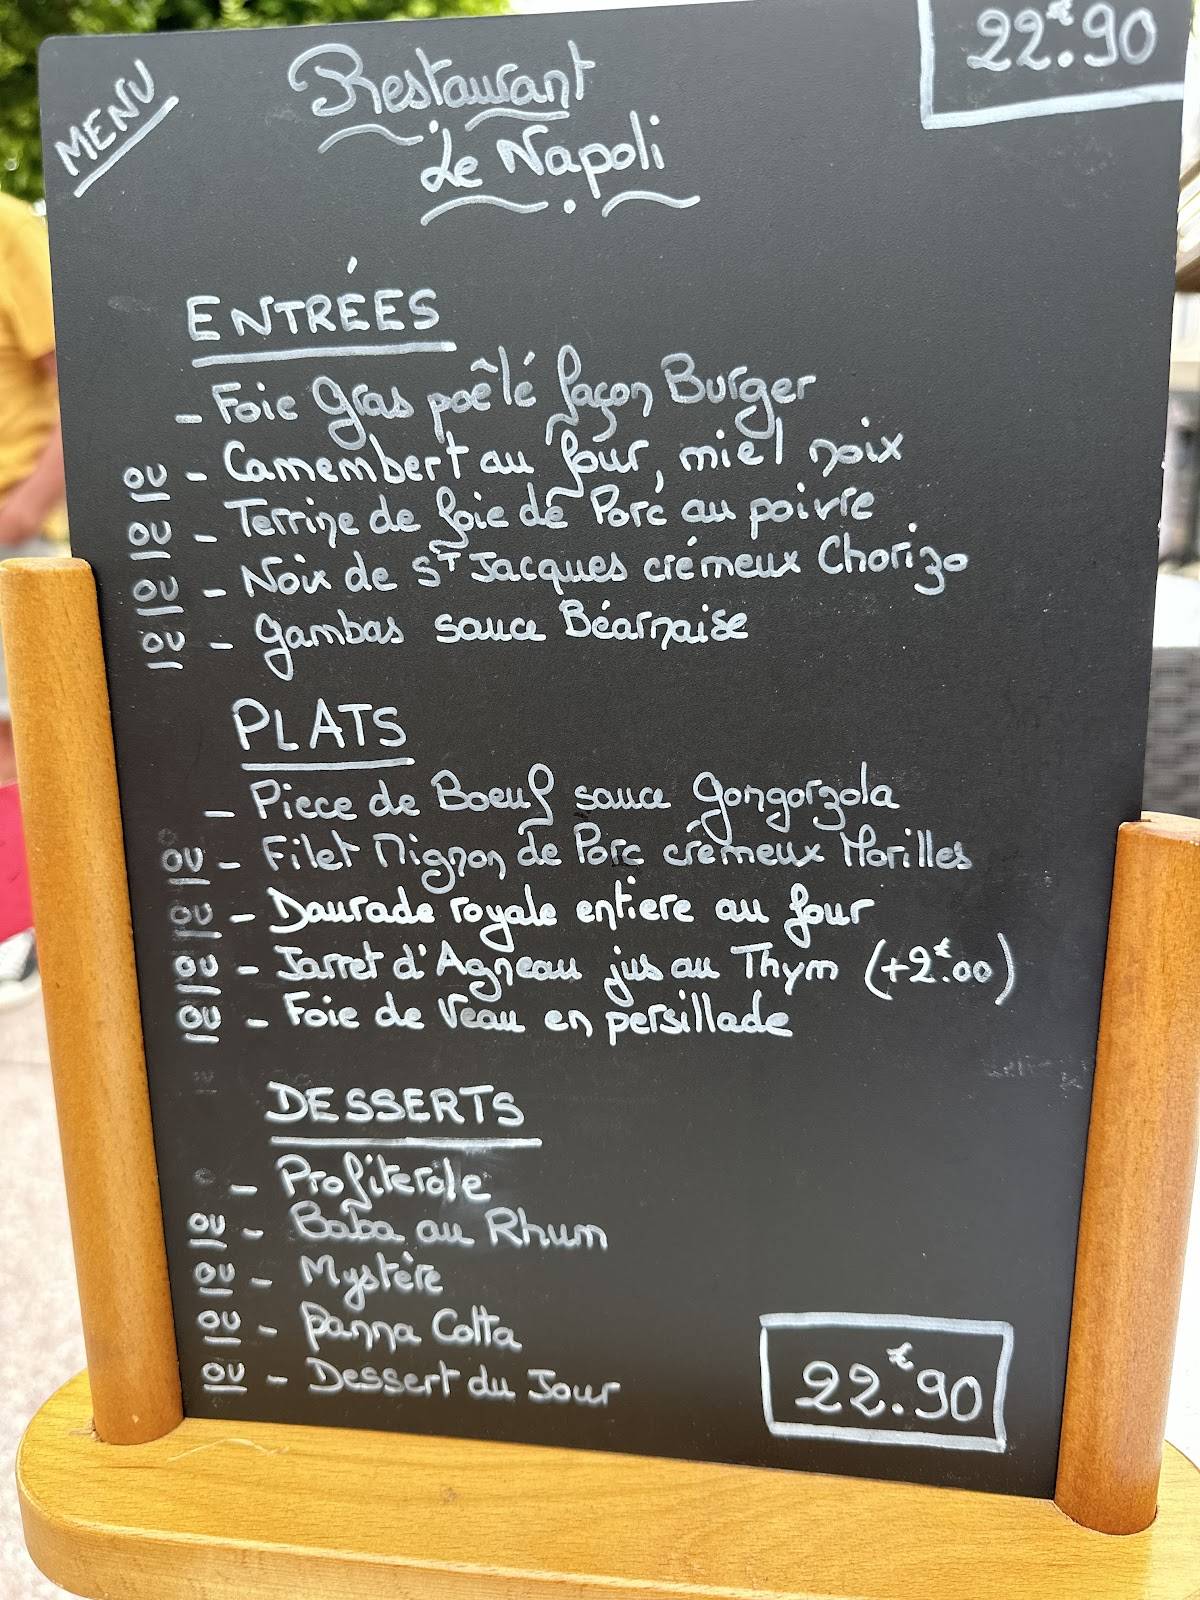 MENU
22.€90
Restaurant
Le Napoli
ENTRÉES
- Foie Gras poêlé façon Burger
ou - Camembert au four, miel noix
ou - Terrine de foie de Porc au poivre
ou - Noix de ST Jacques crémeux Chorizo
ou - Gambas sauce Béarnaise
PLATS
- Piece de Boeuf sauce Gongorzola
ou - Filet Mignon de Porc crémeux Morilles
ou - Daurade royale entiere au four
ou - Jarret d'Agneau jus au Thym (+2.€00)
ou - Foie de Veau en persillade
DESSERTS
- Profiterole
ou - Baba au Rhum
ou - Mystère
ou - Panna Cotta
ou - Dessert du Jour
22.€90